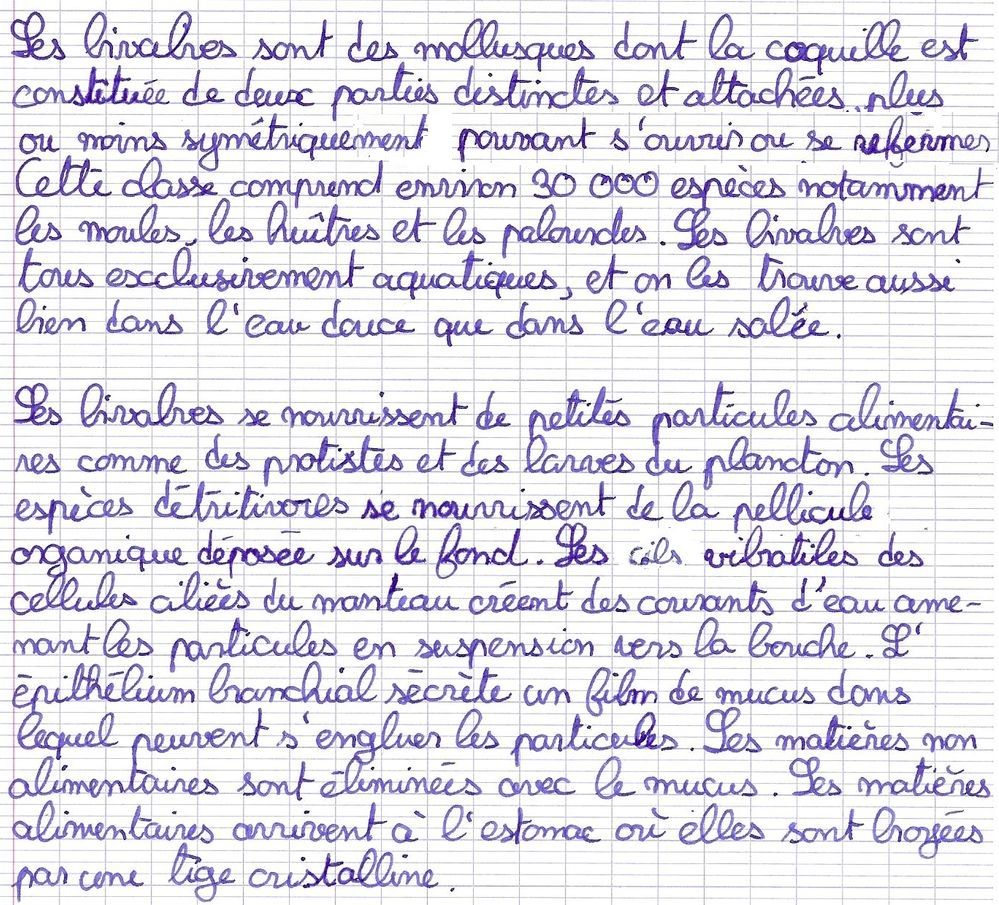 Les bivalves sont des mollusques dont la coquille est
constituée de deux parties distinctes et attachées, plus
ou moins symétriquement pouvant s'ouvrir ou se refermer
Cette classe comprend environ 30 000 espèces notamment
les moules, les huîtres et les palourdes. Les bivalves sont
tous exclusivement aquatiques, et on les trouve aussi
bien dans l'eau douce que dans l'eau salée.

Les bivalves se nourrissent de petites particules alimentai-
res comme des protistes et des larves du plancton. Les
espèces détritivores se nourrissent de la pellicule
organique déposée sur le fond. Les cils vibratiles des
cellules ciliées du manteau créent des courants d'eau ame-
nant les particules en suspension vers la bouche. L'
épithélium branchial sécrète un film de mucus dans
lequel peuvent s'engluer les particules. Les matières non
alimentaires sont éliminées avec le mucus. Les matières
alimentaires arrivent à l'estomac où elles sont broyées
par une tige cristalline.